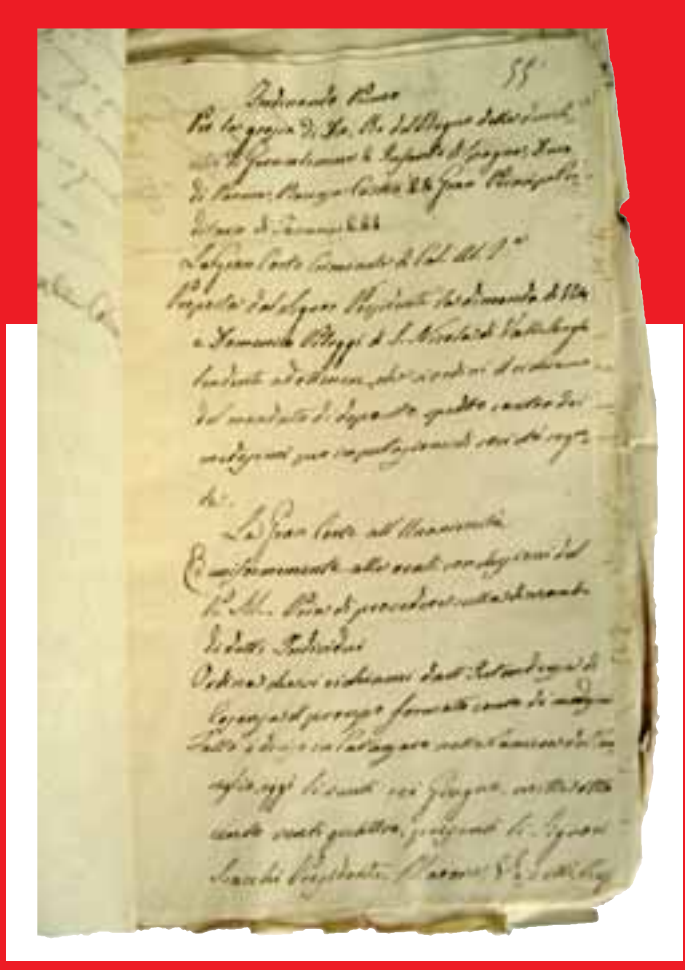 55
Ferdinando Primo
Per la grazia di Dio, Re del Regno delle due Sici-
lie di Gerusalemme & Infante di Spagna, Duca
di Parma, Piacenza Castro && Gran Principe Ere-
ditario di Toscana &&&
La Gran Corte Criminale di Cal. Ul. 2ª
Proposta dal Signor Presidente la dimanda di
e Domenico Pileggi di S. Nicola di Vallelonga
tendente ad ottenere, che si ordini il richiamo
del mandato di deposito spedito contro dei
medesimi per imputazione di
La Gran Corte all'Unanimità
E uniformemente alle orali conclusioni del
P. M. Pria di procedere sulla dimanda
di detti Individui
Ordina che si richiami dall'Intendenza di
Cosenza il processo formato conto di
Fatto e deciso in Catanzaro nella Camera del Con
siglio, oggi li venti sei Giugno mille otto
cento venti quattro, presenti li Signori
Presidente,